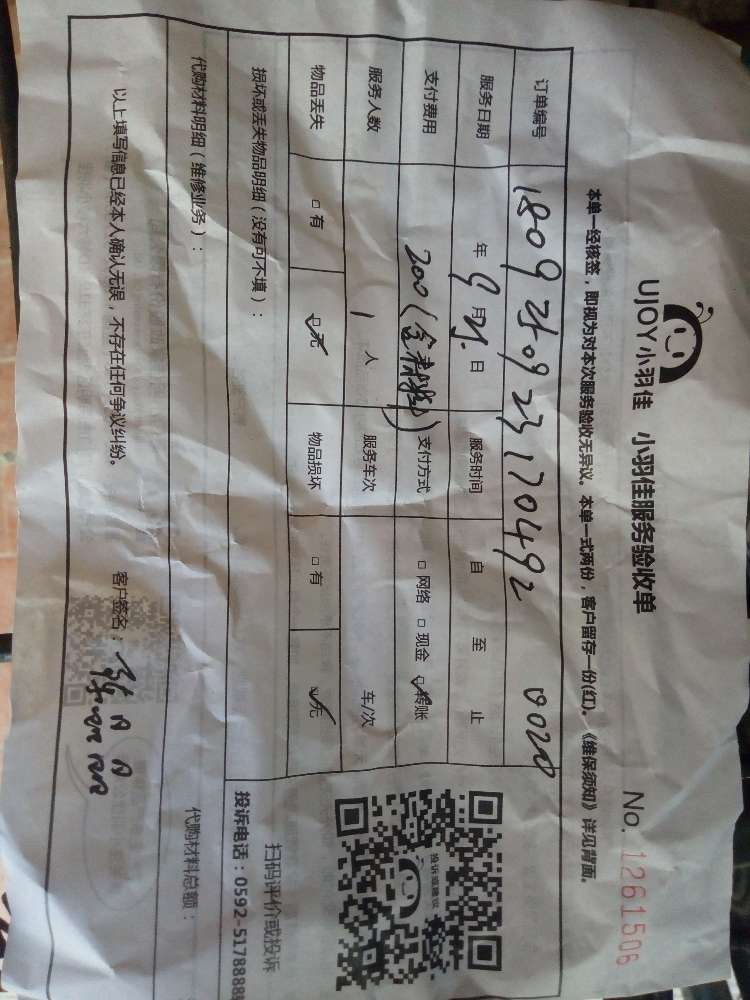 UJOY小羽佳 小羽佳服务验收单
No. 1261506
本单一经核签，即视为对本次服务验收无异议。本单一式两份，客户留存一份(红)。《维保须知》详见背面。
订单编号 18092509231704920020
服务日期 年 9 月 25 日 服务时间 自 至 止
支付费用 200 支付方式 □ 网络 □ 现金 ☑ 转账
服务人数 1 人 服务车次 车/次
物品丢失 □ 有 ☑ 无 物品损坏 □ 有 ☑ 无
损坏或丢失物品明细（没有可不填）：
投诉或建议
扫码评价或投诉
投诉电话：0592-5178888
代购材料明细（维修业务）： 代购材料总额：
以上填写信息已经本人确认无误，不存在任何争议纠纷。 客户签名：